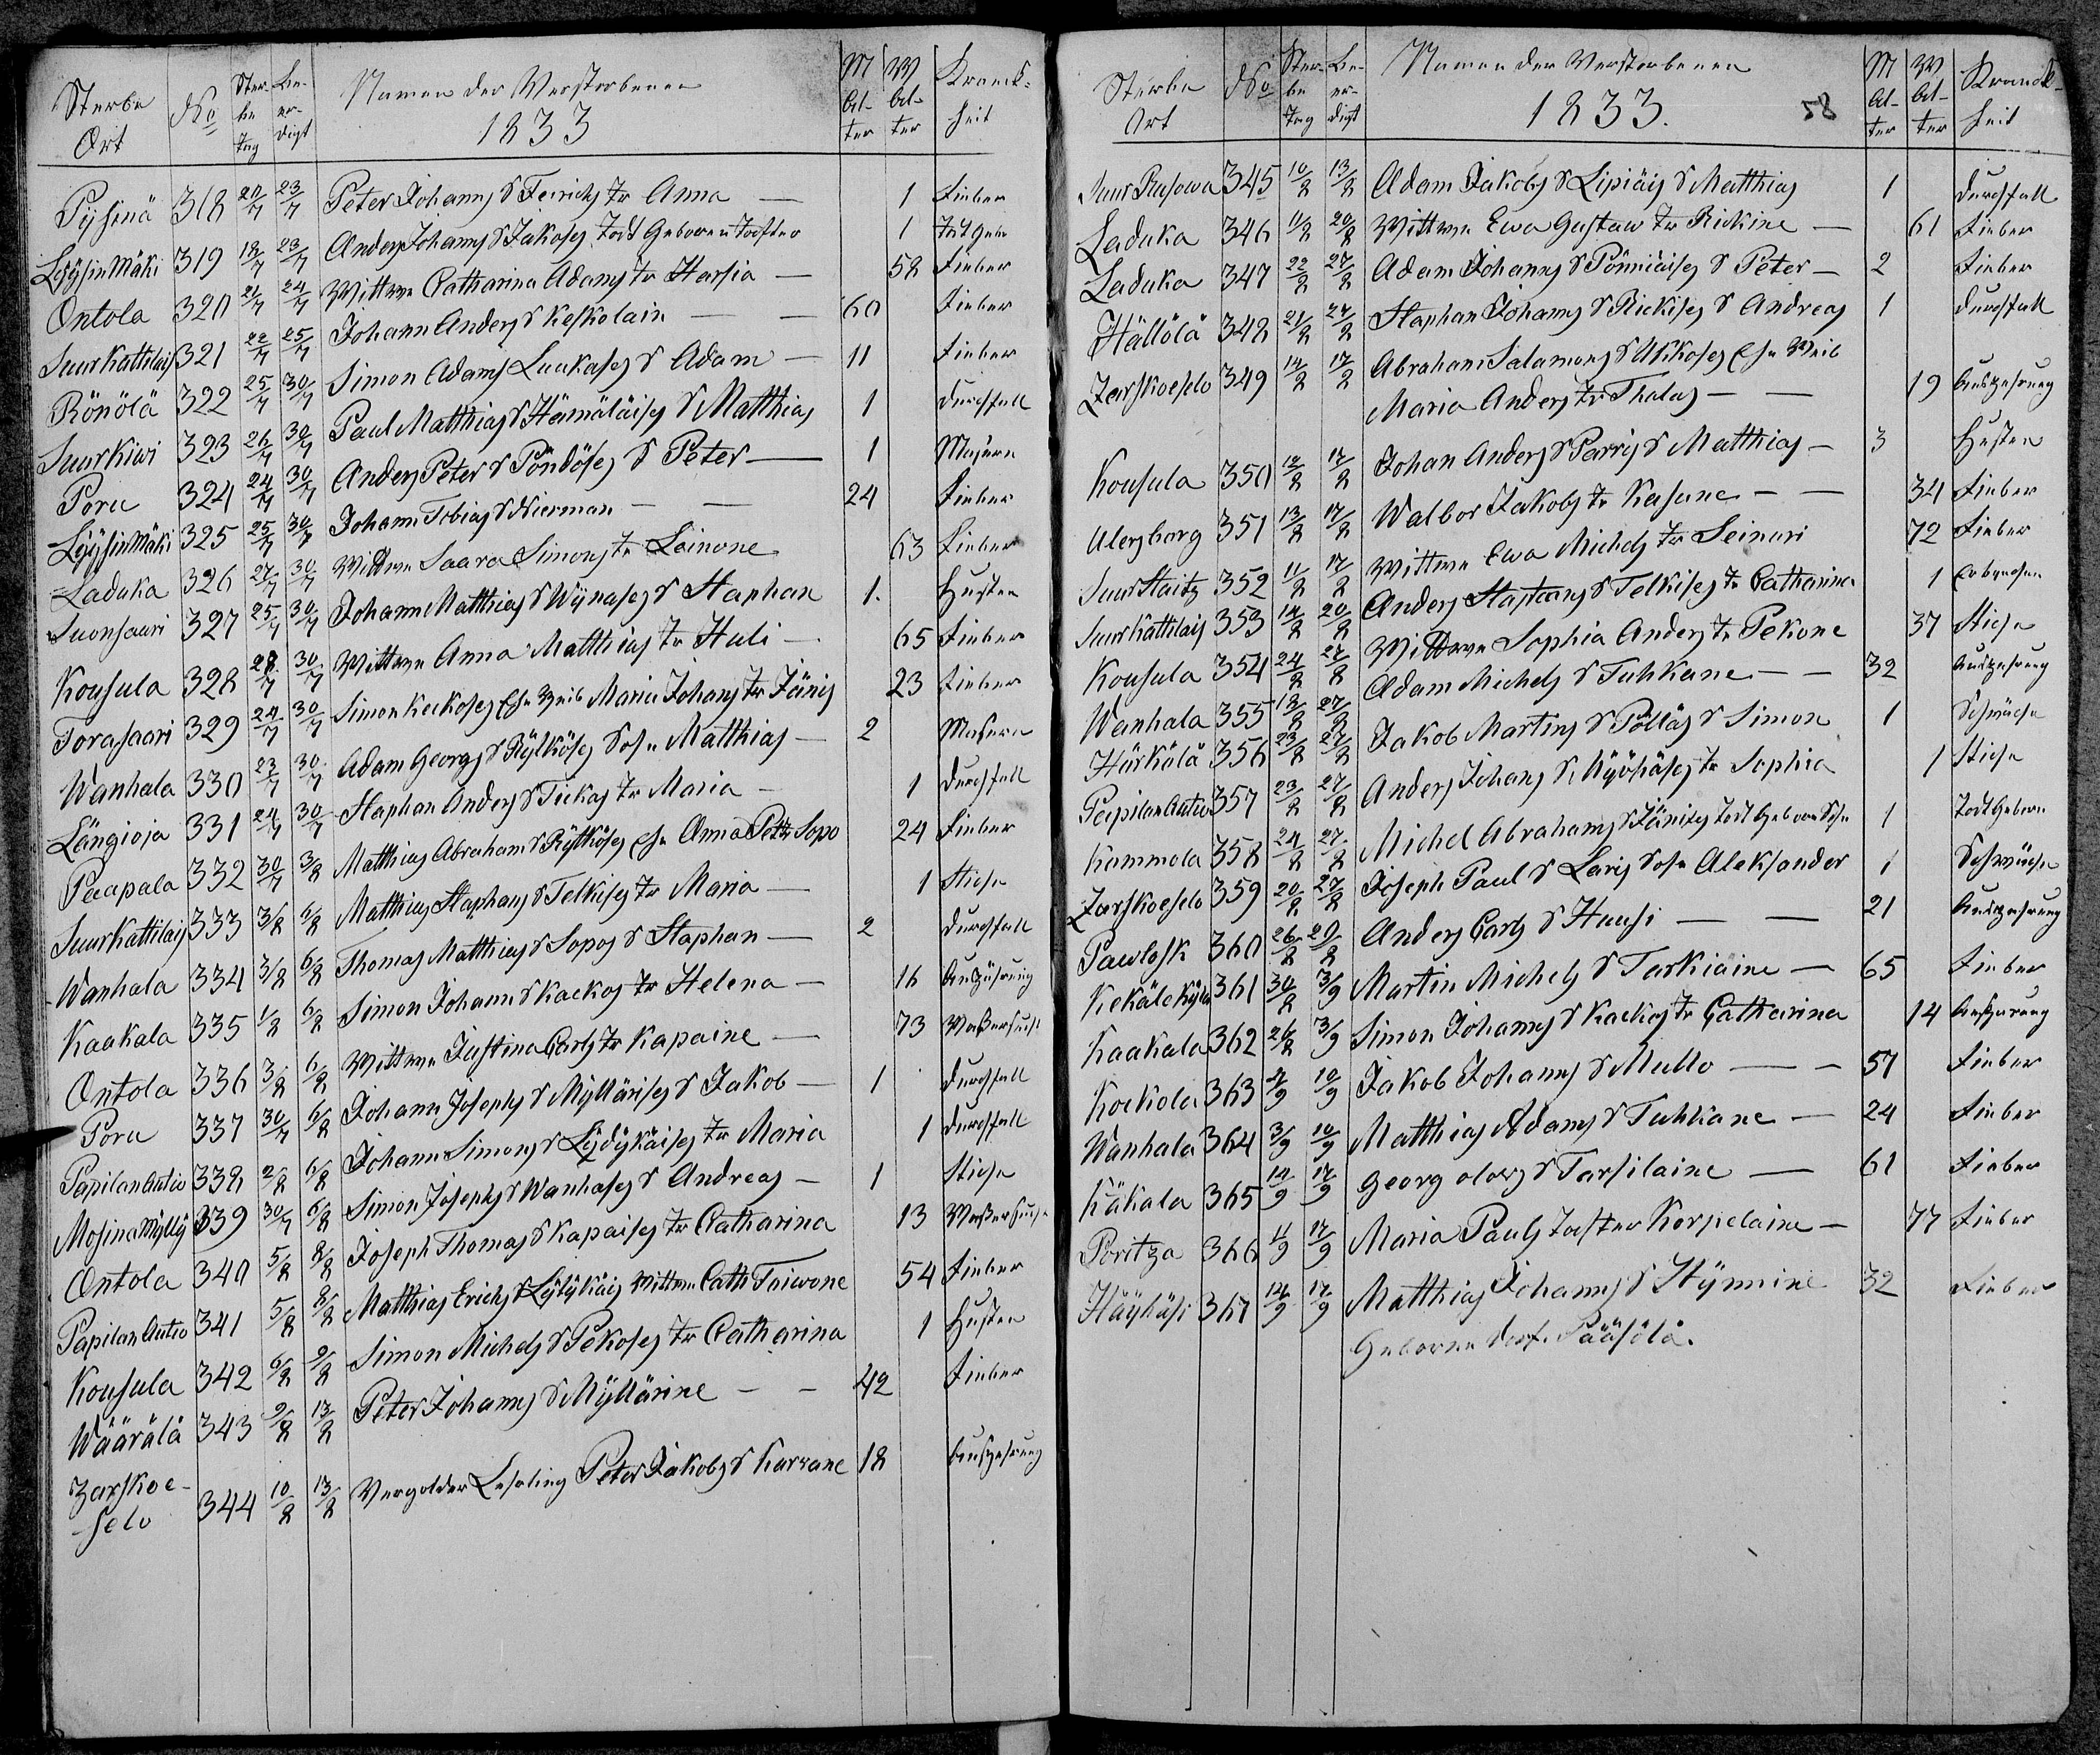 Sterbe Ort No Sterbe Tag Beerdigt Namen der Verstorbenen 1833 M Alter W Alter Kranckheit
Pysinä 318 20/7 23/7 Peter Johanns S Feirichs Tr Anna — 1 Fieber
Lyysinmäki 319 18/7 23/7 Anders Johanns S Jakoses Todt Geboren Tochter 1 Todt Gebo
Ontola 320 21/7 24/7 Wittwe Catharina Adams Tr Harsia — 58 Fieber
Suur Kattilais 321 22/7 25/7 Johann Anders S Keskolain — 60 Fieber
Rönölä 322 25/7 30/7 Simon Adams Luukases S Adam — 11 Fieber
Suurkiwi 323 26/7 30/7 Paul Matthias S Hämäläises S Matthias 1 Durchfall
Poru 324 24/7 30/7 Anders Peter S Pöndöses S Peter — 1 Masern
Lyysinmäki 325 25/7 30/7 Johann Tobias S Nierman — — 24 Fieber
Laduka 326 27/7 30/7 Wittwe Saara Simons Tr Loinone 63 Fieber
Suonsaari 327 25/7 30/7 Johann Matthias S Wynases S Staphan 1. Husten
Kousula 328 28/7 30/7 Wittwe Anna Matthias Tr Huli — 65 Fieber
Torasaari 329 29/7 30/7 Simon Keckoses Ehe Weib Maria Johans Tr Jänis 23 Fieber
Wanhala 330 23/7 30/7 Adam Georgs S Rylköses Sohn Matthias — 2 Masern
Längioja 331 24/7 30/7 Staphan Anders S Tickas Tr Maria — 1 Durchfall
Paapala 332 30/7 3/8 Matthias Abraham S Rylköses Ehe Anna Petr Sopo 24 Fieber
Suurkattilais 333 3/8 6/8 Matthias Staphans S Telkises Tr Maria — 1 Stiche
Wanhala 334 3/8 6/8 Thomas Matthias S Sopos S Staphan — 2 Durchfall
Kaakala 335 1/8 6/8 Simon Johann S Kaekos Tr Helena — 16 Auszührung
Ontola 336 3/8 6/8 Wittwe Justina Carls Tr Kapaine — 73 Waßersucht
Poru 337 30/7 6/8 Johann Josephs S Myllärises S Jakob — 1 Durchfall
Papilan Autio 338 2/8 6/8 Johann Simons S Lydykäises Tr Maria 1 Durchfall
Mosina Mylly 339 30/7 6/8 Simon Josephs S Wanhases S Andreas — 1 Stiche
Ontola 340 5/8 8/8 Joseph Thomas S Kapaises Tr Catharina 13 Waßersucht
Papilan Autio 341 5/8 8/8 Matthias Erichs S Lylykäis Wittwe Cath Toiwone 54 Fieber
Kousula 342 6/8 9/8 Simon Michels S Pekoses Tr Catharina 1 Husten
Wäärälä 343 9/8 13/8 Peter Johanns S Myllärine — — 42 Fieber
Zarskoe-
selo 344 10/8 13/8 Vergolder Lehrling Peter Jakobs S Karrane 18 Auszehrung
Sterbe Ort No Sterbe Tag Beerdigt Namen der Verstorbenen 1833. 58 M Alter W Alter Kranckheit
Suur Rusowa 345 10/8 13/8 Adam Jakobs S Lipiäis S Matthias 1 Durchfall
Laduka 346 11/8 20/8 Wittwe Ewa Gustaw Tr Rickine — 61 Fieber
Laduka 347 22/8 27/8 Adam Johanns S Pönniäises S Peter — 2 Fieber
Hällölä 348 21/8 24/8 Staphan Johanns S Rickises S Andreas 1 Durchfall
Zarskoeselo 349 14/8 17/8 Abraham Salamons S Ukkoses Ehe Weib
Maria Anders Tr Tholas — — 19 Auszehrung
Kousula 350 12/8 17/8 Johan Anders S Parris S Matthias — 3 Husten
Alexsbarg 351 13/8 17/8 Walbor Jakobs Tr Kasune — — 34 Fieber
Suur Staitz 352 11/8 17/8 Wittwe Ewa Michels Tr Leinari 72 Fieber
Suur Kattilais 353 14/8 20/8 Anders Staphans S Telkises Tr Catharina 1
Kousula 354 24/8 27/8 Wittwe Sophia Anders Tr Pekone 37 Stiche
Wanhala 355 18/8 27/8 Adam Michels S Tuhkane — — 32 Auszehrung
Härkälä 356 23/8 27/8 Jakob Martins S Pölläs S Simon 1 Schwäche
Papilan Autio 357 23/8 27/8 Anders Johans S Myöhäses Tr Sophia 1 Stiche
Kammola 358 24/8 27/8 Michel Abrahams S Jänises Todt Geboren Sohn 1 Todt Geboren
Zarskoeselo 359 20/8 27/8 Joseph Paul S Laris Sohn Aleksander 1 Schwäche
Pawlosk 360 26/8 29/8 Anders Carls S Huusi — — 21 Auszehrung
Kekäle Kylä 361 30/8 3/9 Martin Michels S Tarkiaine — 65 Fieber
Kaakala 362 26/8 3/9 Simon Johanns S Kaekos Tr Catharina 14 Auszurung
Kockola 363 4/9 10/9 Jakob Johanns S Mullo — — 57 Fieber
Wanhala 364 3/9 10/9 Matthias Adams S Tuhkane — 24 Fieber
Käkala 365 14/9 17/9 Georg olows S Tarsilaine — 61 Fieber
Poritza 366 11/9 17/9 Maria Pauls Tochter Korpelaine — 77 Fieber
Häykäsi 367 14/9 17/9 Matthias Johanns S Hynnine 32 Fieber
Geboren dorf. Pääsölä.